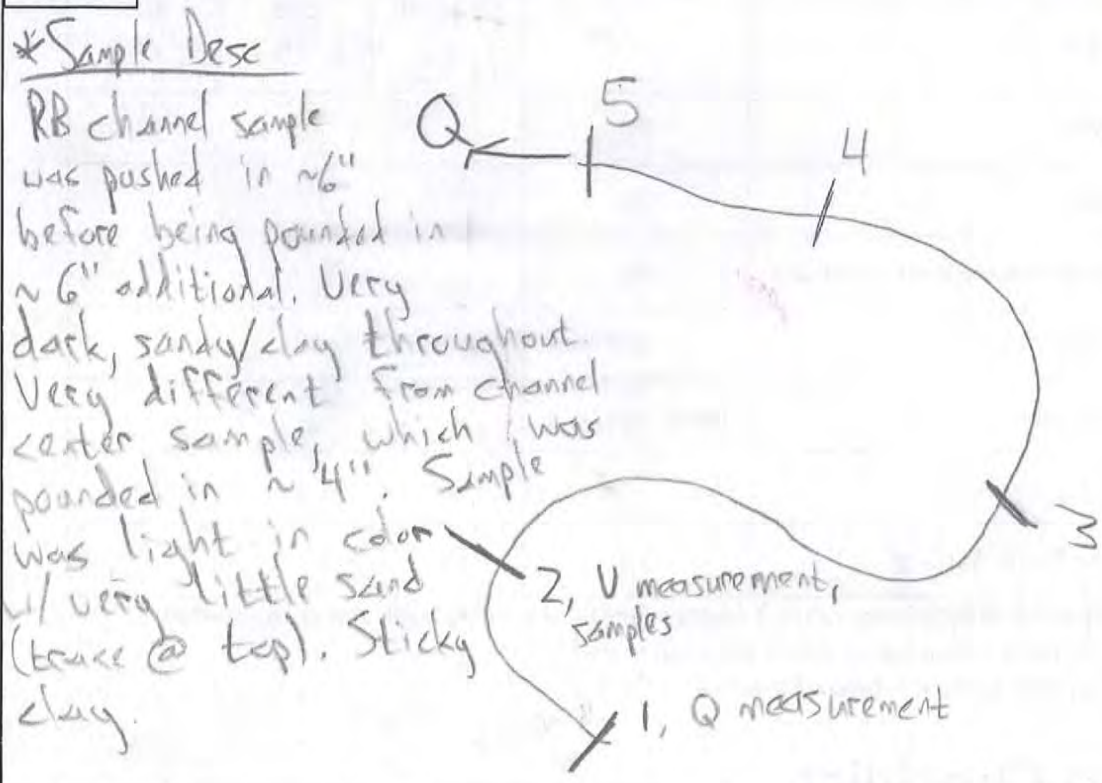 *Sample Desc
RB channel sample
was pushed in ~6"
before being pounded in
~ 6" additional. Very
dark, sandy/clay throughout
Very different from channel
center sample, which was
pounded in ~ 4". Sample
was light in color
w/ very little sand
(trace @ top). Sticky
clay.
Q
5
4
3
2, V measurement,
samples
1, Q measurement